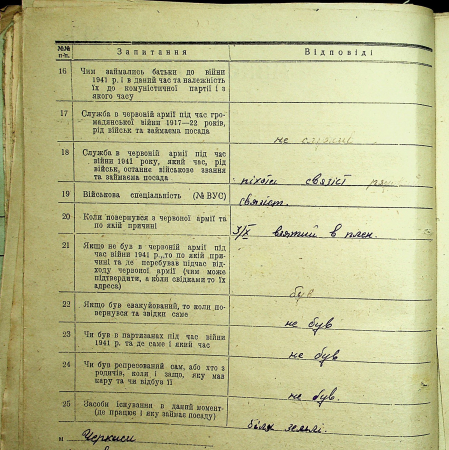 №№ п-п.
Запитання
Відповіді
16 Чим займались батьки до війни
1941 р. і в даний час та належність
їх до комуністичної партії і з
якого часу
17 Служба в червоній армії під час гро-
мадянської війни 1917—22 років,
рід військ та займаєма посада
не служив
18 Служба в червоній армії під час
війни 1941 року, який час, рід
військ, останнє військове звання
та займаєма посада
піхоти связіст
19 Військова спеціальність (№ ВУС)
связіст.
20 Коли повернувся з червоної армії та
по якій причині
взятий в плен.
21 Якщо не був в червоній армії під
час війни 1941 р., то по якій при-
чині та де перебував підчас від-
ходу червоної армії (чим може
підтвердити, а коли свідками то їх
адреса)
був
22 Якщо був евакуйований, то коли по-
вернувся та звідки саме
не був
23 Чи був в партизанах під час війни
1941 р. та де саме і який час
не був
24 Чи був репресований сам, або хто з
родичів, коли і за що, яку мав
кару та чи відбув її
не був.
25 Засоби існування в даний момент-
(де працює і яку займає посаду)
біля землі.